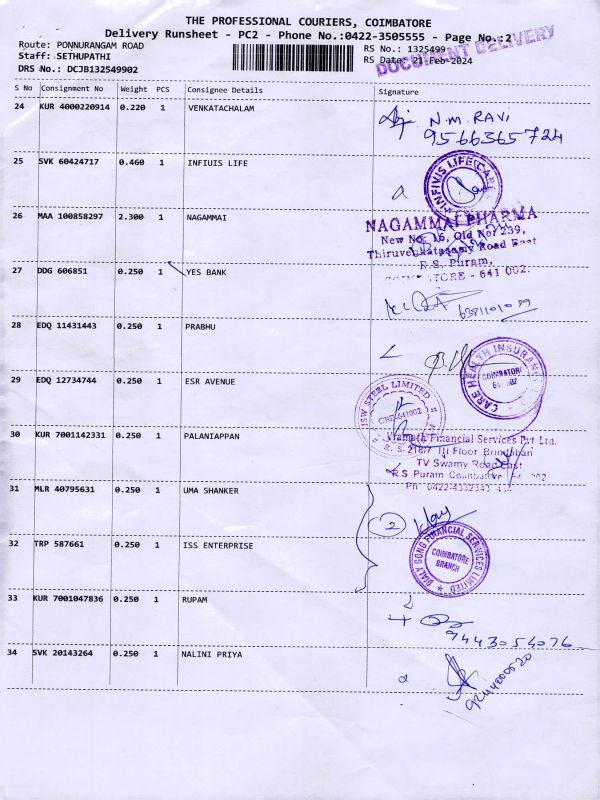 THE PROFESSIONAL COURIERS, COIMBATORE
Delivery Runsheet - PC2 - Phone No.:0422-3505555 - Page No.:2
Route: PONNURANGAM ROAD
RS No.: 1325499
DOCUMENT DELIVERY
Staff: SETHUPATHI
RS Date: 21-Feb-2024
DRS No.: DCJB132549902
S No Consignment No Weight PCS Consignee Details Signature
24 KUR 4000220914 0.220 1 VENKATACHALAM
N.M. RAVI
9566365724
25 SVK 60424717 0.460 1 INFIUIS LIFE
INFIVIS LIFE CARE
26 MAA 100858297 2.300 1 NAGAMMAI
NAGAMMAI PHARMA
New No: 16, Old No: 239,
Thiruvenkatasamy Road East
R.S. Puram,
COIMBATORE - 641 002.
27 DDG 606851 0.250 1 YES BANK
28 EDQ 11431443 0.250 1 PRABHU
CARE HEALTH INSURANCE
COIMBATORE
29 EDQ 12734744 0.250 1 ESR AVENUE
JSW STEEL LIMITED
CBE-641002
30 KUR 7001142331 0.250 1 PALANIAPPAN
Financial Services Pvt Ltd.
R. S. 218/7 III Floor Brindaban
TV Swamy Road East
R.S Puram Coimbatore
31 MLR 40795631 0.250 1 UMA SHANKER
2
32 TRP 587661 0.250 1 ISS ENTERPRISE
FINANCIAL SERVICES LIMITED
COIMBATORE
BRANCH
33 KUR 7001047836 0.250 1 RUPAM
9443054076
34 SVK 20143264 0.250 1 NALINI PRIYA